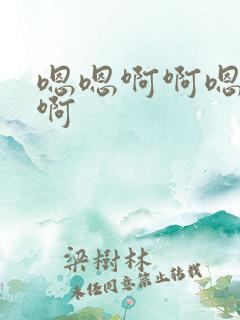 嗯嗯啊啊嗯
啊
梁樹林
未经同意禁止转载